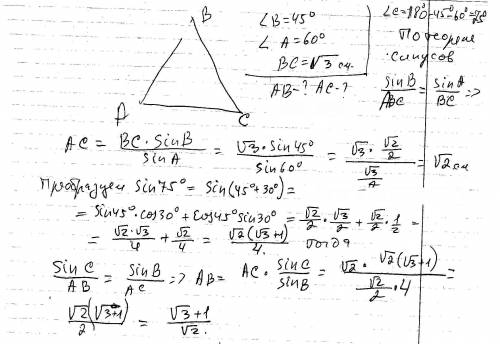 B
A
C
∠B=45°
∠A=60°
BC=√3 см.
AB-? AC-?
∠C=180°-45°-60°=75°
По теореме
синусов
sinB/ABC = sinA/BC ⇒
AC = BC·sinB/sinA = √3·sin45°/sin60° = √3·√2/2 / √3/2 = √2 см
Преобразуем sin75° = sin(45°+30°)=
= sin45°·cos30°+cos45°sin30° = √2/2·√3/2 + √2/2·1/2 =
= √2·√3/4 + √2/4 = √2(√3+1)/4. тогда
sinC/AB = sinB/AC ⇒ AB= AC·sinC/sinB = √2·√2(√3+1) / √2/2·4 =
√2(√3+1)/2 = √3+1/√2.